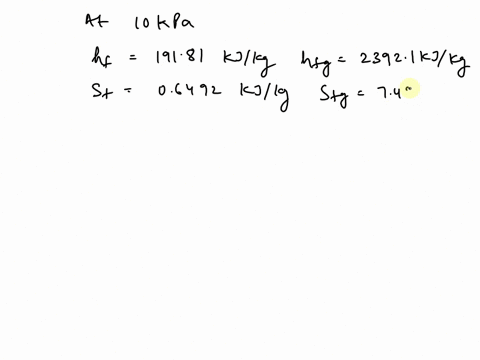 At 10 kPa
hf = 191.81 KJ/kg hfg = 2392.1 KJ/kg
Sf = 0.6492 KJ/kg Sfg = 7.4